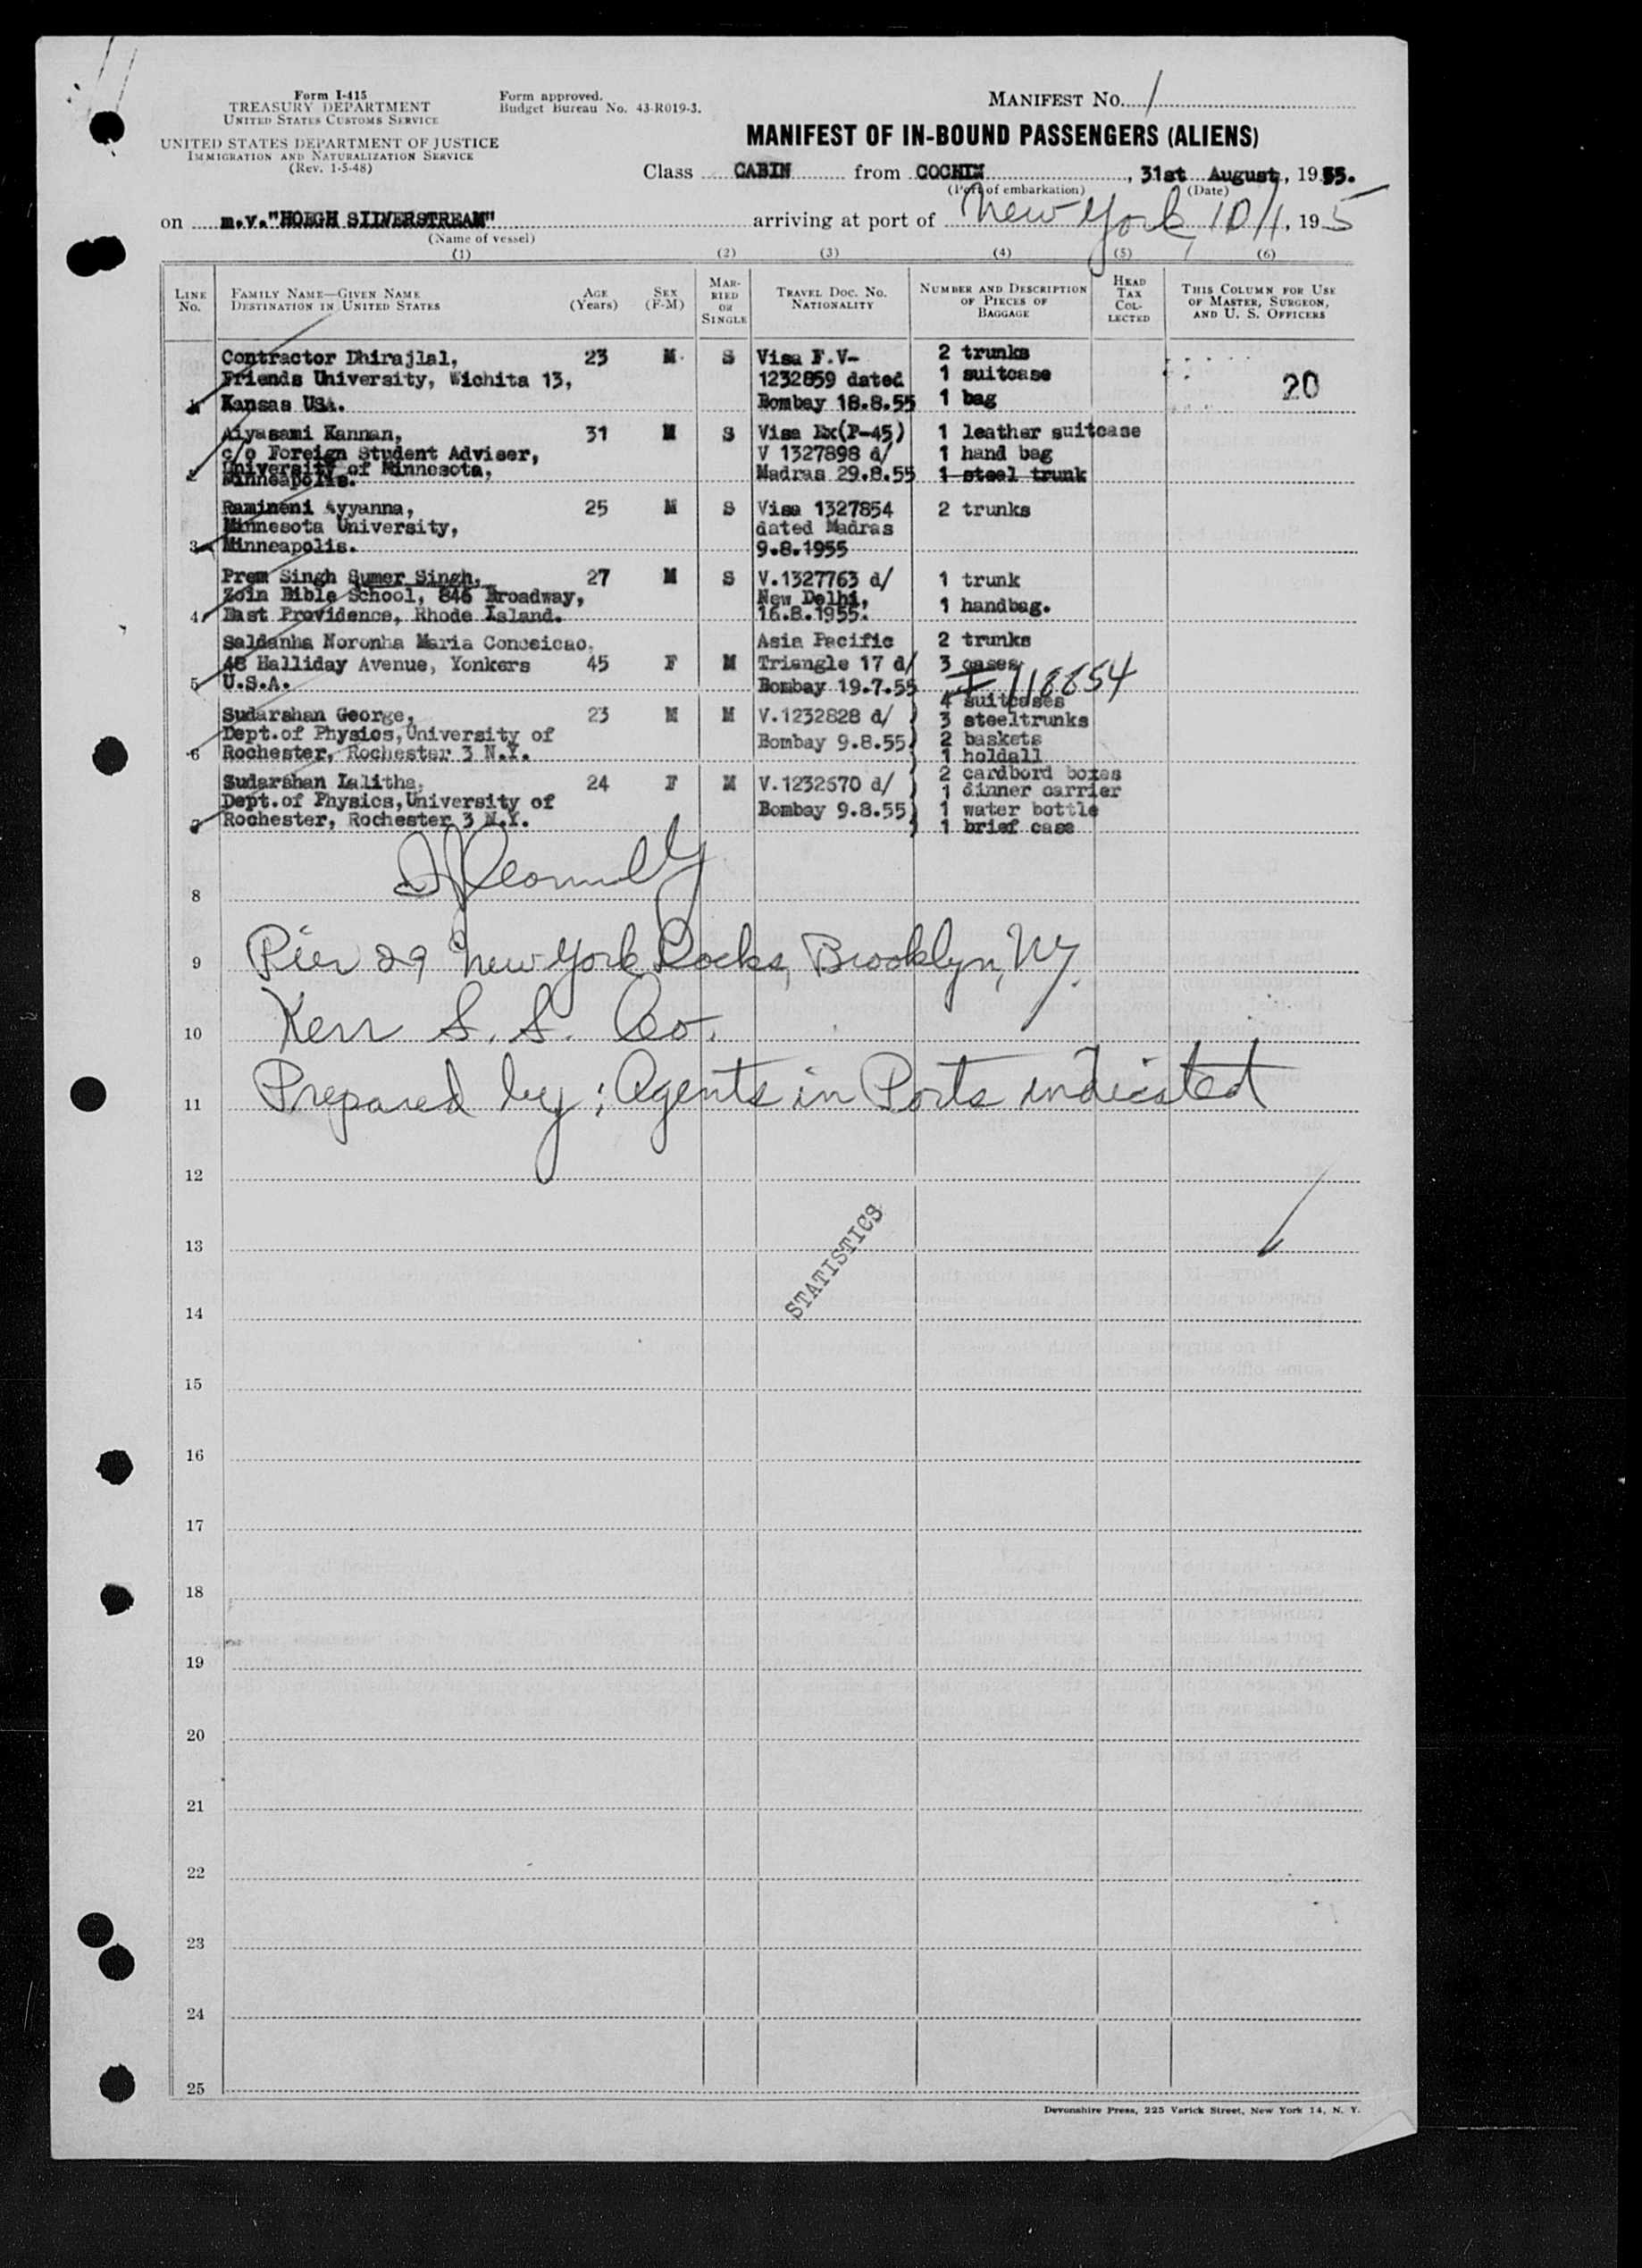 Form I-415
TREASURY DEPARTMENT
UNITED STATES CUSTOMS SERVICE
UNITED STATES DEPARTMENT OF JUSTICE
IMMIGRATION AND NATURALIZATION SERVICE
(Rev. 1-5-48)
Form approved.
Budget Bureau No. 43-R019-3.
MANIFEST NO. 1
MANIFEST OF IN-BOUND PASSENGERS (ALIENS)
Class CABIN from COCHIN, 31st August, 1955.
(Port of embarkation) (Date)
on m.v."HOEGH SILVERSTREAM" arriving at port of New York, 10/1, 195
(Name of vessel)
(1) (2) (3) (4) (5) (6)
LINE NO.
FAMILY NAME—GIVEN NAME
DESTINATION IN UNITED STATES
AGE (Years)
SEX (F-M)
MARRIED OR SINGLE
TRAVEL DOC. NO. NATIONALITY
NUMBER AND DESCRIPTION OF PIECES OF BAGGAGE
HEAD TAX COLLECTED
THIS COLUMN FOR USE OF MASTER, SURGEON, AND U. S. OFFICERS
Contractor Dhirajlal, 23 M. S Visa F.V- 2 trunks
Friends University, Wichita 13, 1232859 dated 1 suitcase 20
Kansas USA. Bombay 18.8.55 1 bag
Aiyasami Kannan, 31 M S Visa Ex(P-45) 1 leather suitcase
c/o Foreign Student Adviser, V 1327898 d/ 1 hand bag
University of Minnesota, Madras 29.8.55 1 steel trunk
Minneapolis.
Ramineni Ayyanna, 25 M S Visa 1327854 2 trunks
Minnesota University, dated Madras
3 Minneapolis. 9.8.1955
Prem Singh Sumer Singh, 27 M S V.1327763 d/ 1 trunk
Zoin Bible School, 846 Broadway, New Delhi, 1 handbag.
4 East Providence, Rhode Island. 16.8.1955.
Saldanha Noronha Maria Conceicao, Asia Pacific 2 trunks
48 Halliday Avenue, Yonkers 45 F M Triangle 17 d/ 3 cases
5 U.S.A. Bombay 19.7.55 I 718854
4 suitcases
Sudarshan George, 23 M M V.1232828 d/ 3 steeltrunks
Dept.of Physics,University of Bombay 9.8.55 2 baskets
6 Rochester, Rochester 3 N.Y. 1 holdall
Sudarshan Lalitha, 24 F M V.1232670 d/ 2 cardbord boxes
Dept.of Physics,University of 1 dinner carrier
Rochester, Rochester 3 N.Y. Bombay 9.8.55 1 water bottle
1 brief case
8
9 Pier 29 New York Docks, Brooklyn, NY.
10 Kerr S. S. Co.
11 Prepared by: Agents in Ports indicated
12
13
STATISTICS
14
15
16
17
18
19
20
21
22
23
24
25
Devonshire Press, 225 Varick Street, New York 14, N. Y.